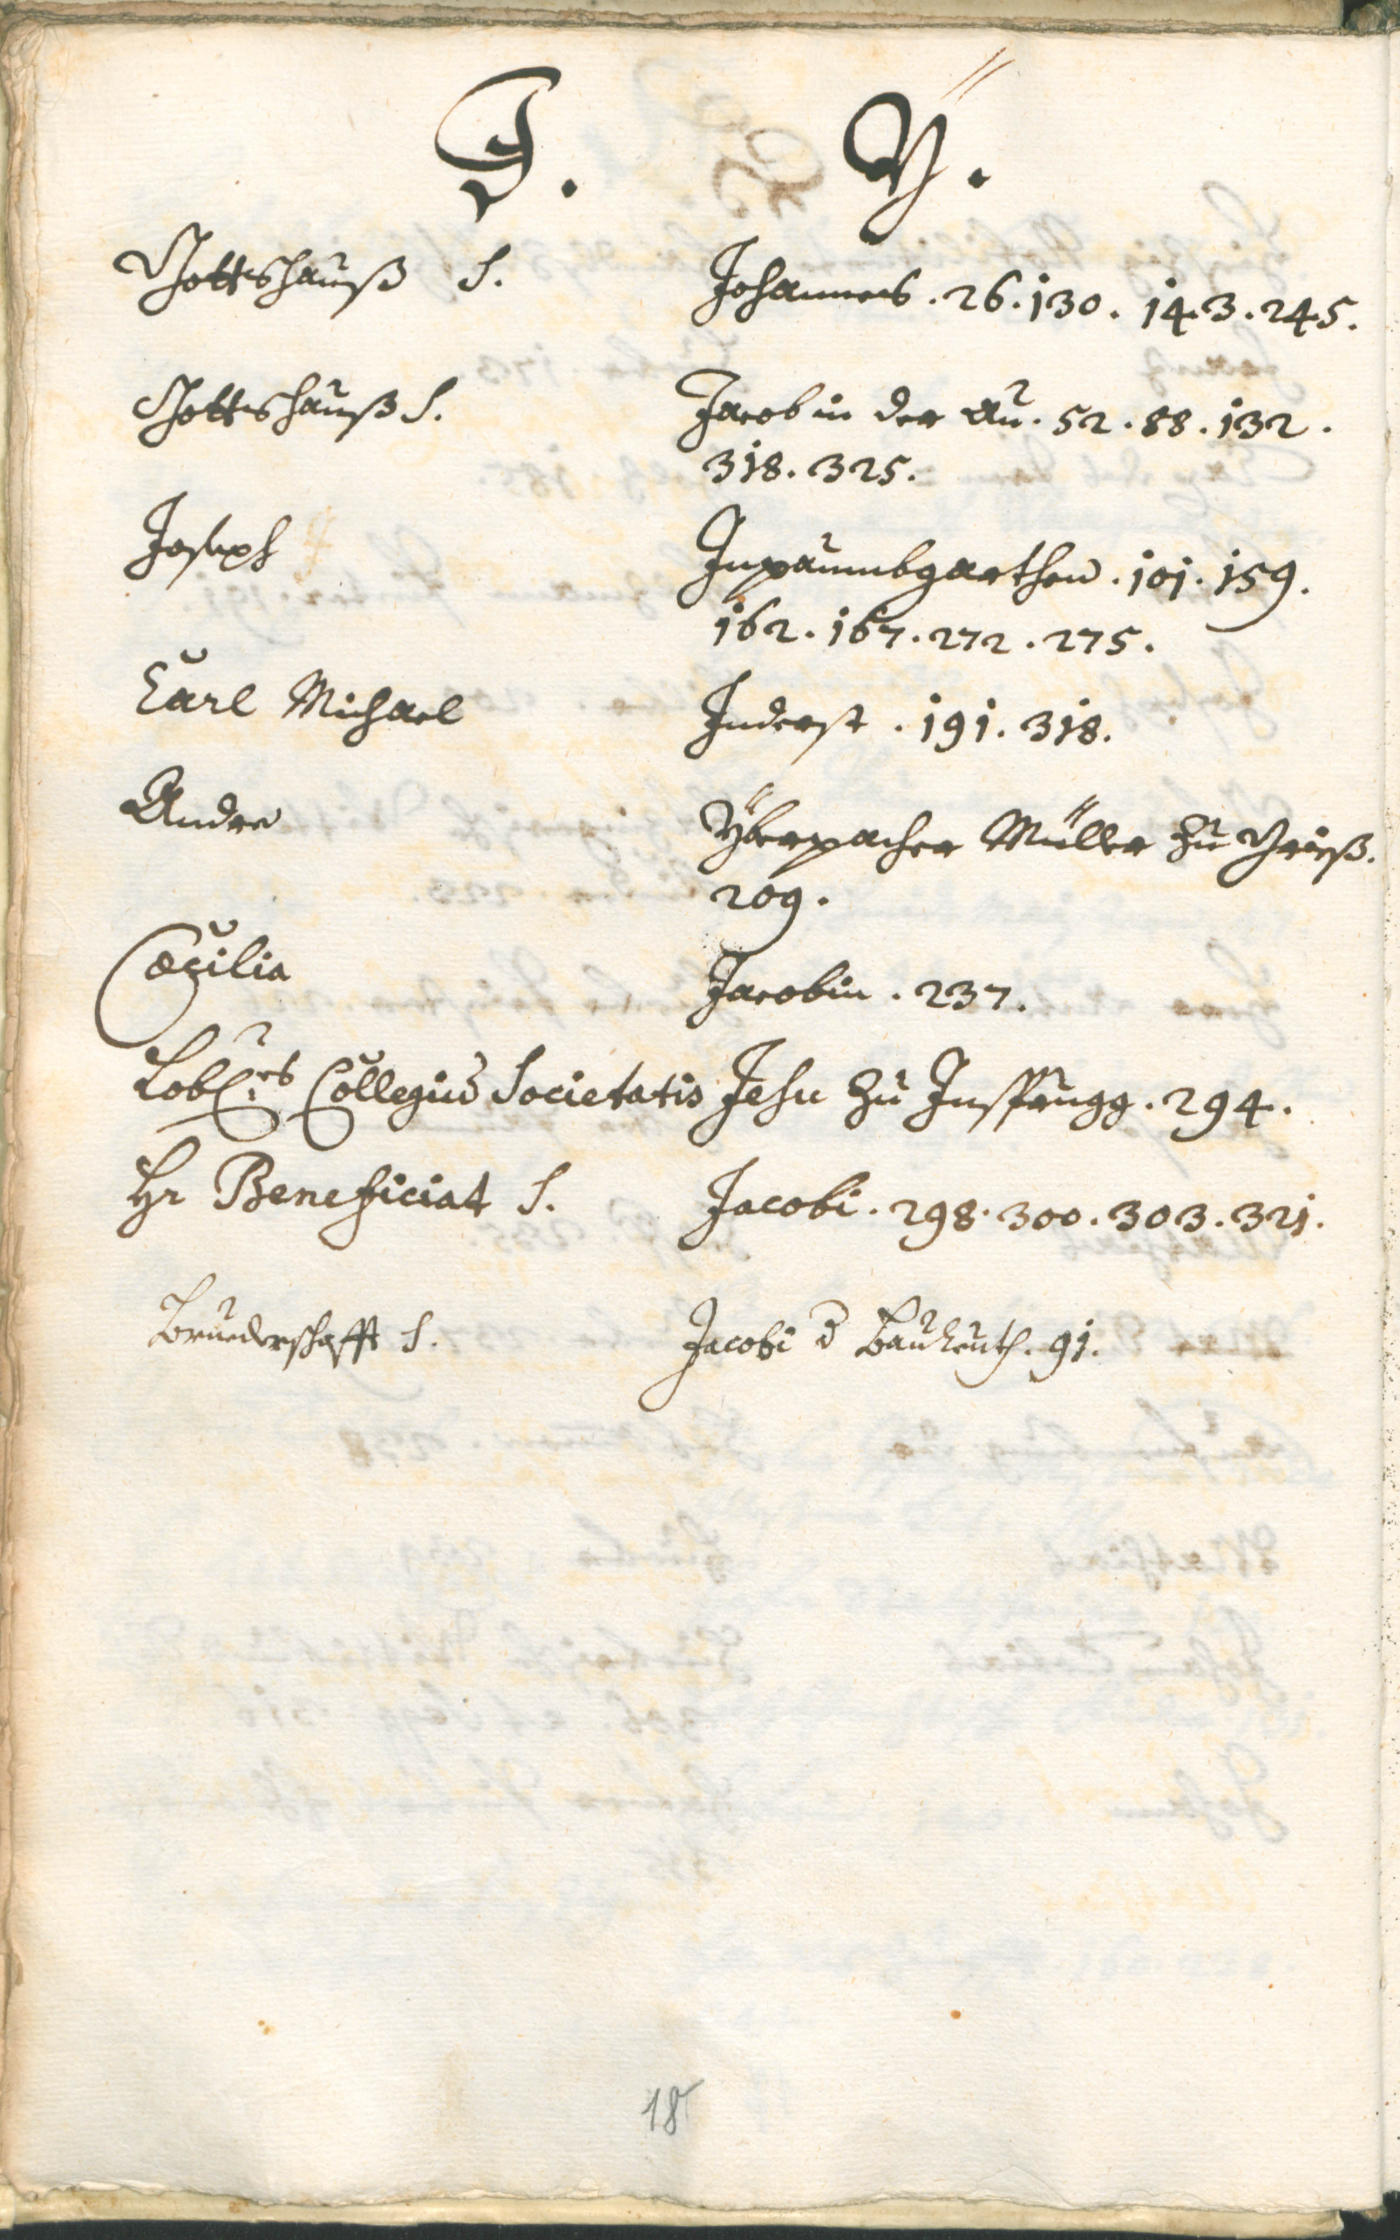 J. Y.
Gottshauß S. Johannes . 26 . 130 . 143 . 245 .
Gottshauß S. Jacob in der Au . 52 . 88 . 132 .
318 . 325 .
Joseph Inpaumbgarthen . 101 . 159 .
162 . 167 . 272 . 275 .
Carl Michael Inderst . 191 . 318 .
Andre Yberpacher Müller zu Grieß .
209 .
Cæcilia Jacobin . 237 .
Lobl:es Collegium Societatis Jesu zu Insprugg . 294 .
Hr Beneficiat S. Jacobi . 298 . 300 . 303 . 321 .
Bruederschafft S. Jacobi d Bauleuth . 91 .
18